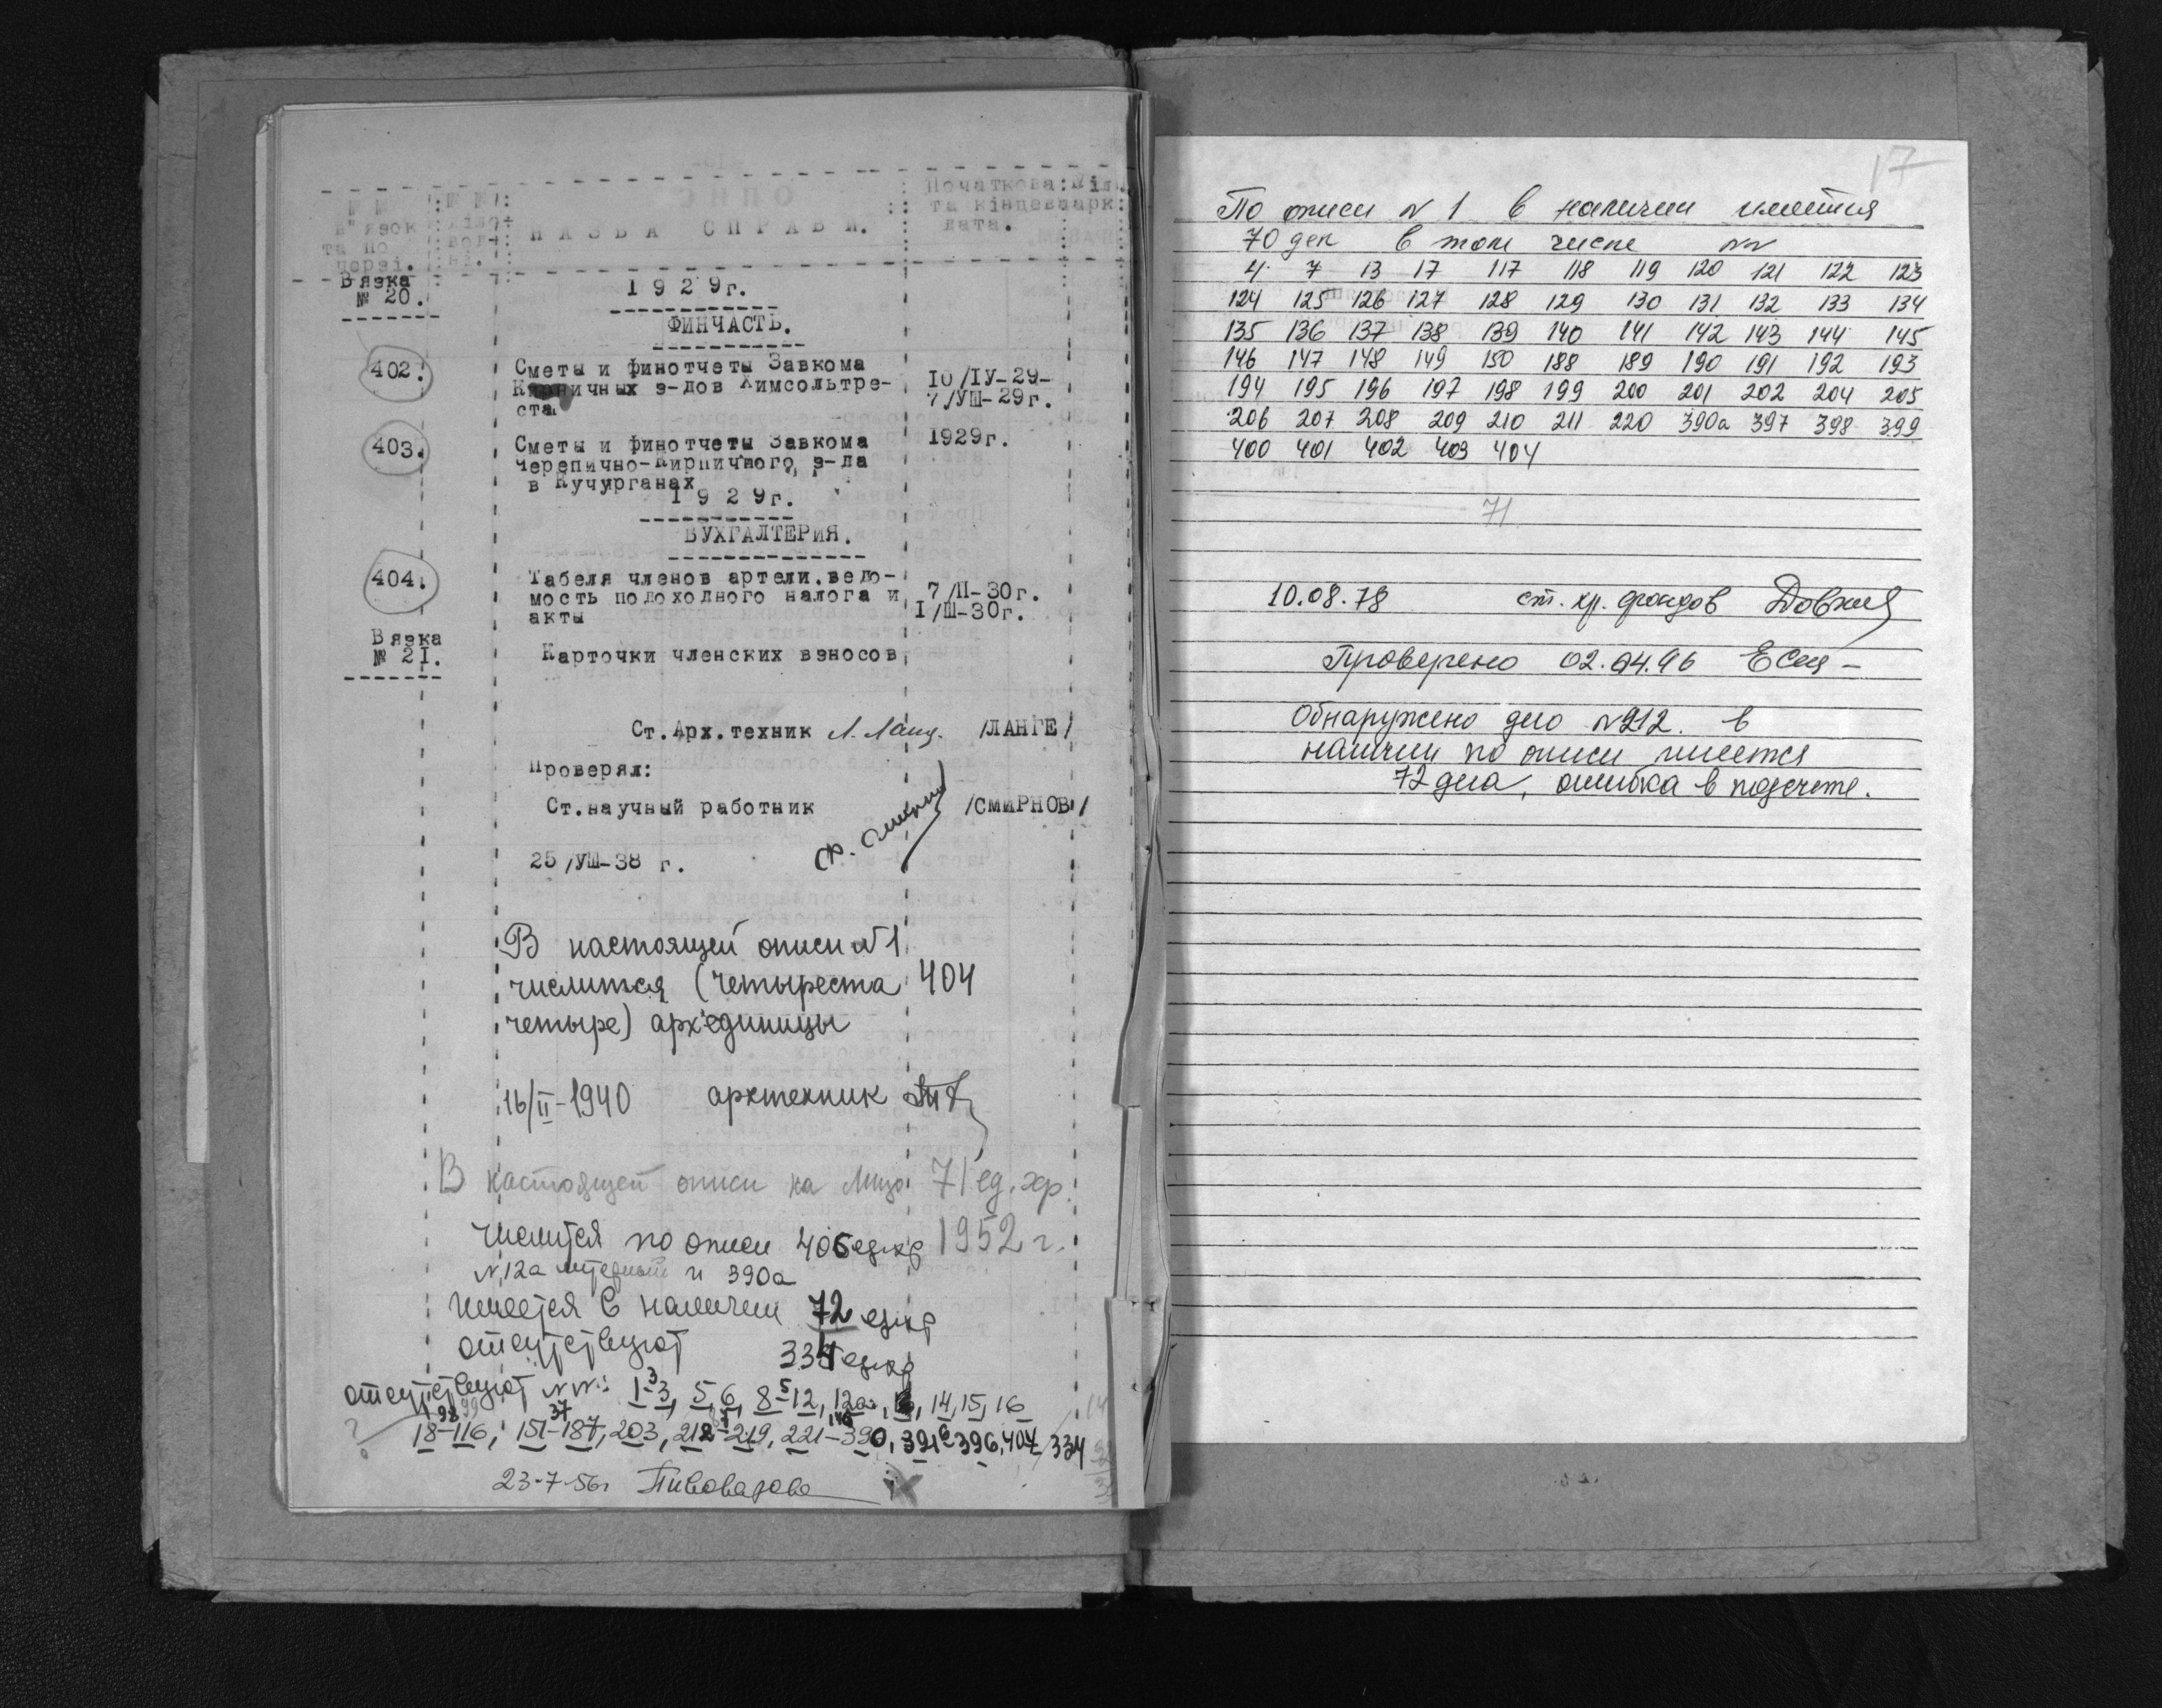 ОПИС
№ №
в"язок
та по
черзі.
НАЗВА СПРАВИ.
Початкова
та кінцева
дата.
Вязка
№ 20.
1929г.
ФИНЧАСТЬ.
402.
Сметы и финотчеты Завкома
К ничных з-дов Химсольтре-
ста
10/ІУ-29-
7/УШ-29г.
403.
Сметы и финотчеты Завкома
Черепично-Кирпичного з-да
в Кучурганах
1929г.
1929г.
БУХГАЛТЕРИЯ.
404.
Табеля членов артели.ведо-
мость подоходного налога и
акты
7/П-30г.
I/Ш-30г.
Вязка
№ 2I.
Карточки членских взносов
Ст.Арх.техник /ЛАНГЕ/
Проверял:
Ст.научный работник /СМИРНОВ/
25/УШ-38 г.
В настоящей описи №1
числится (четыреста 404
четыре) архединицы
16/II-1940 архтехник
В настоящей описи на лицо 71 ед.хр.
1952 г.
числится по описи 406 едхр
№ 12а литерный и 390а
Имеется в наличии 72 едхр
отсутствуют 334 едхр
отсутствуют №№: 1-3, 5,6, 8-12, 12а, 14, 15, 16
18-116, 151-187, 203, 212-219, 221-390, 391-396, 404 334
23-7-56г Пивоварова
17
По описи № 1 в наличии имеется
70 дел в том числе №№
4 7 13 17 117 118 119 120 121 122 123
124 125 126 127 128 129 130 131 132 133 134
135 136 137 138 139 140 141 142 143 144 145
146 147 148 149 150 188 189 190 191 192 193
194 195 196 197 198 199 200 201 202 204 205
206 207 208 209 210 211 220 390а 397 398 399
400 401 402 403 404
71
10.08.78 ст. хр. фондов
Проверено 02.04.96
Обнаружено дело №212. в
наличии по описи имеется
72 дела, ошибка в подсчете.